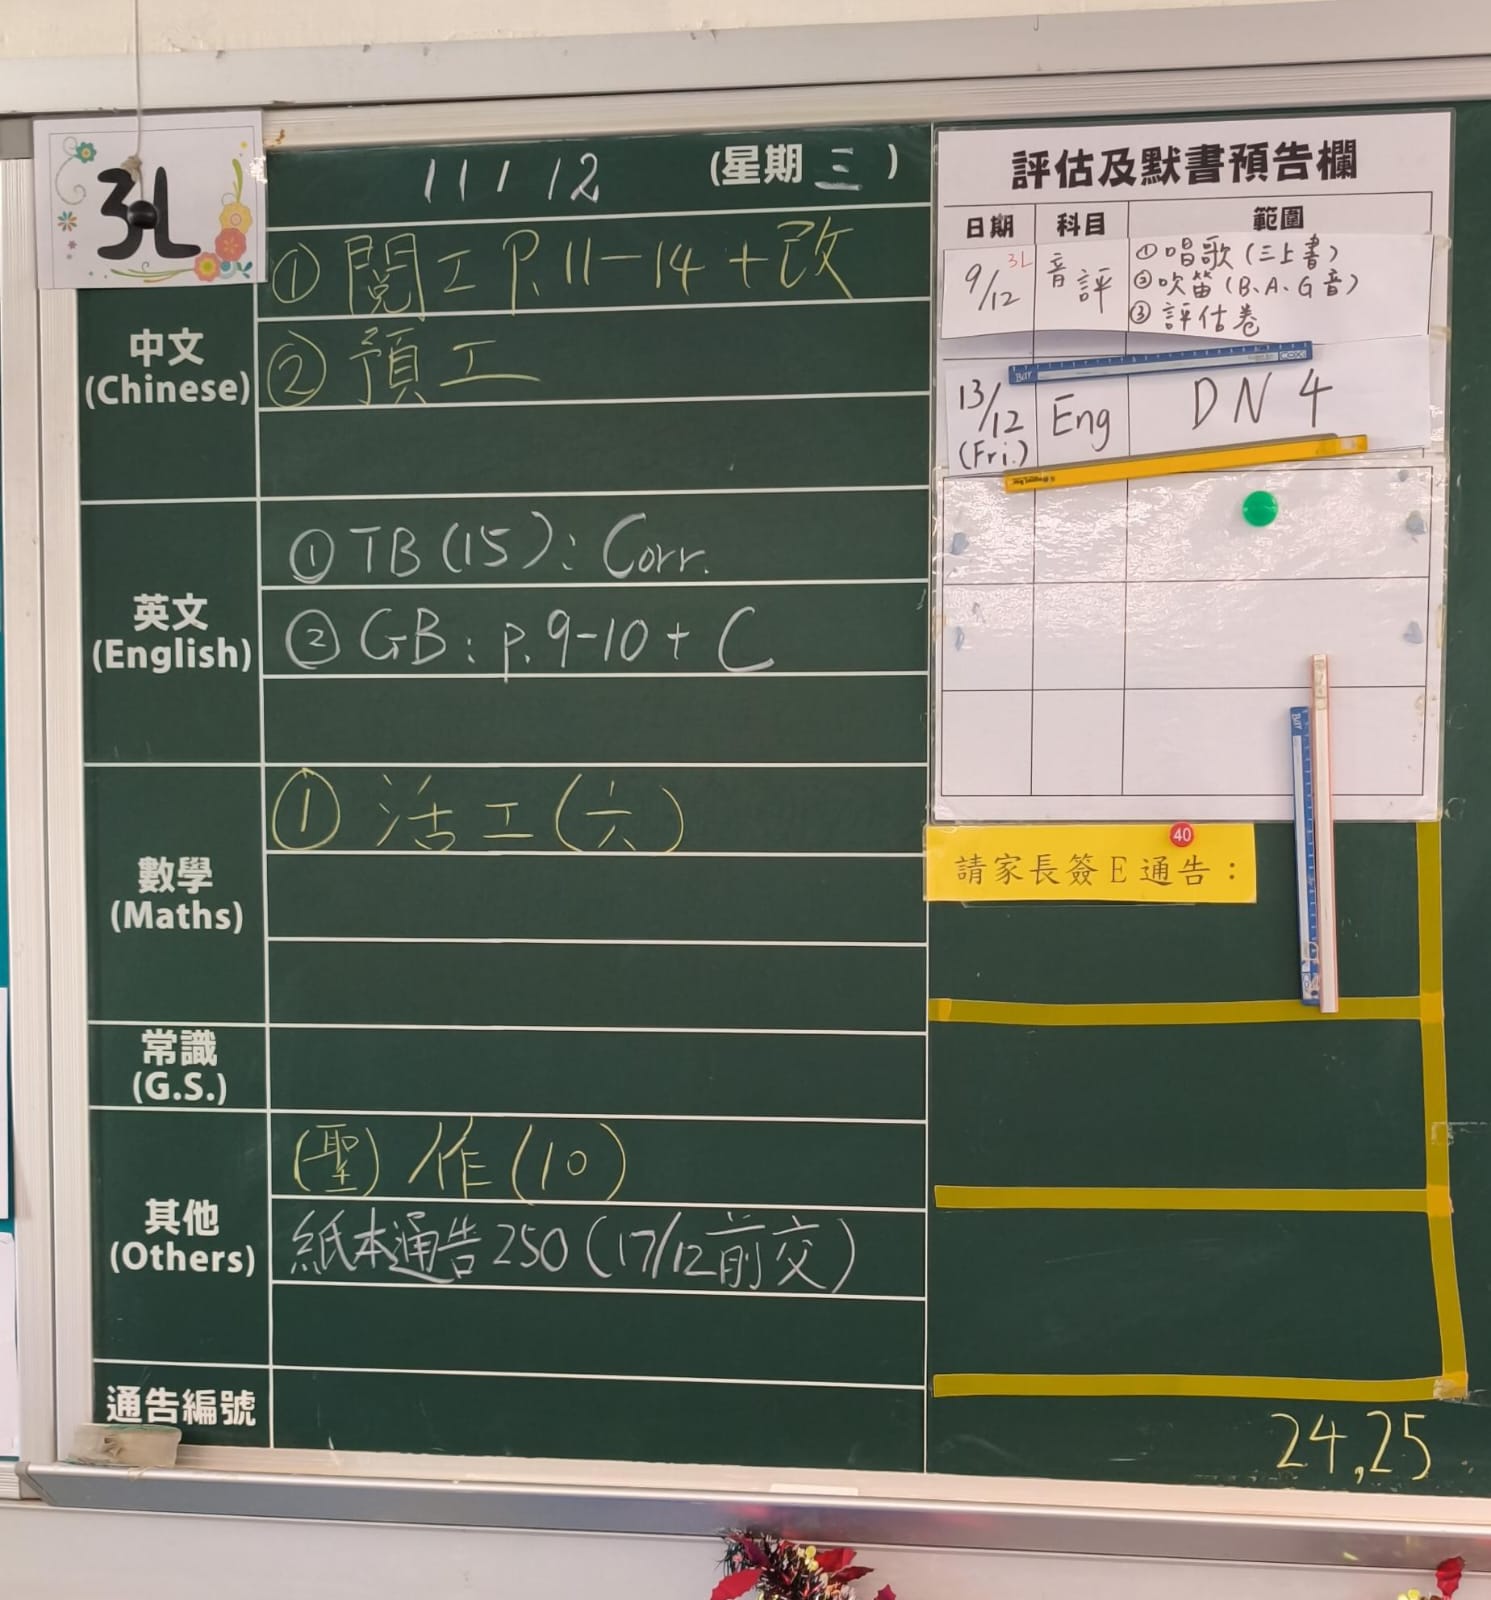 3L
11 / 12 (星期三)
中文
(Chinese)
① 閱工 P.11-14 + 改
② 預工
英文
(English)
① TB(15): Corr.
② GB: p.9-10 + C
數學
(Maths)
① 活工(六)
常識
(G.S.)
其他
(Others)
(聖) 作(10)
紙本通告250(17/12前交)
通告編號
評估及默書預告欄
日期 科目 範圍
9/12 3L 音評 ①唱歌(三上書)
②吹笛(B、A、G音)
③評估卷
13/12 (Fri.) Eng DN 4
40
請家長簽E通告:
24,25